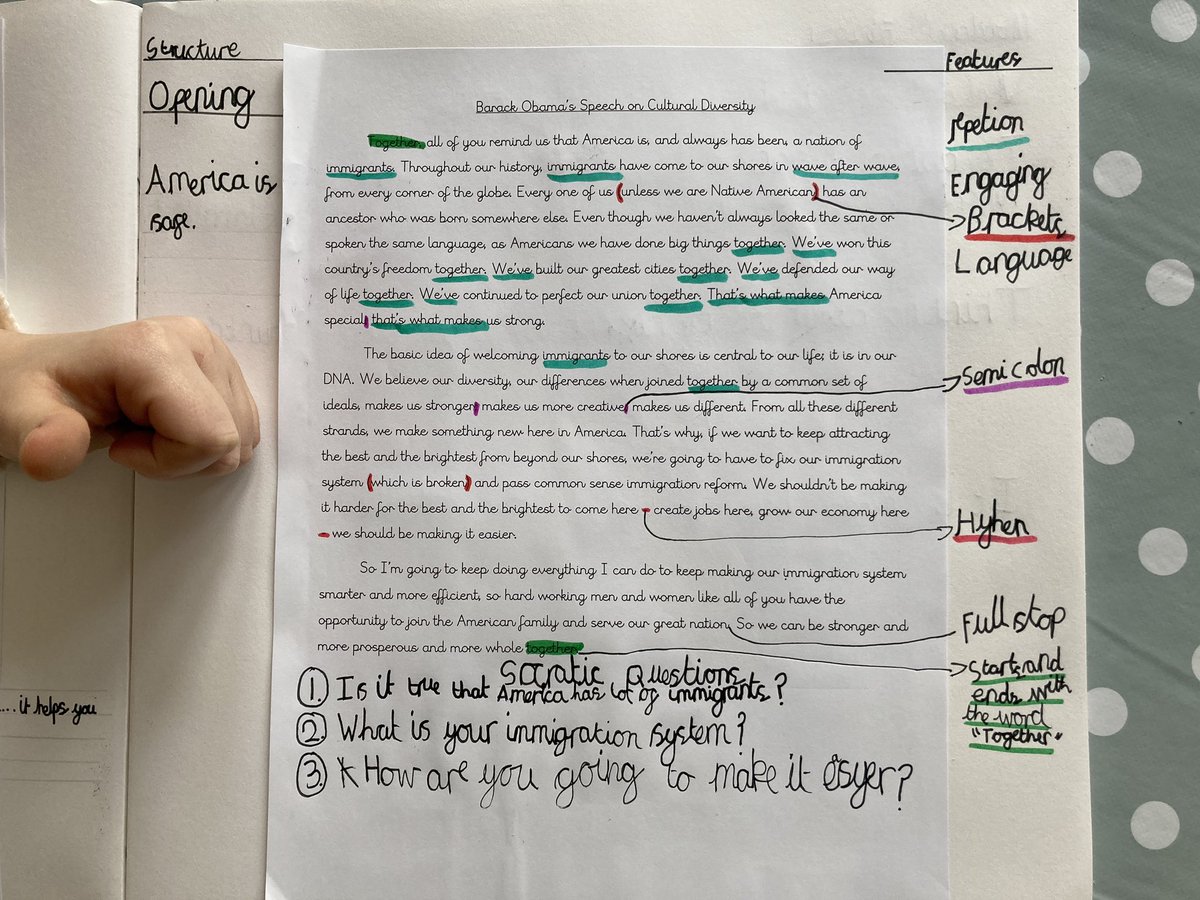 Structure
Opening
America is
sage.
....it helps you
Barack Obama's Speech on Cultural Diversity
Together, all of you remind us that America is, and always has been, a nation of
immigrants. Throughout our history, immigrants have come to our shores in wave after wave,
from every corner of the globe. Every one of us (unless we are Native American) has an
ancestor who was born somewhere else. Even though we haven't always looked the same or
spoken the same language, as Americans we have done big things together. We've won this
country's freedom together. We've built our greatest cities together. We've defended our way
of life together. We've continued to perfect our union together. That's what makes America
special; that's what makes us strong.
The basic idea of welcoming immigrants to our shores is central to our life; it is in our
DNA. We believe our diversity, our differences when joined together by a common set of
ideals, makes us stronger; makes us more creative; makes us different. From all these different
strands, we make something new here in America. That's why, if we want to keep attracting
the best and the brightest from beyond our shores, we're going to have to fix our immigration
system (which is broken) and pass common sense immigration reform. We shouldn't be making
it harder for the best and the brightest to come here – create jobs here, grow our economy here
– we should be making it easier.
So I'm going to keep doing everything I can do to keep making our immigration system
smarter and more efficient, so hard working men and women like all of you have the
opportunity to join the American family and serve our great nation. So we can be stronger and
more prosperous and more whole together.
Socratic Questions
1. Is it true that America has lot of immigrants?
2. What is your immigration system?
3. How are you going to make it esyer?
Features
repetion
Engaging
Brackets
Language
Semi colon
Hyhen
Full stop
Starts and
ends with
the word
"Together"